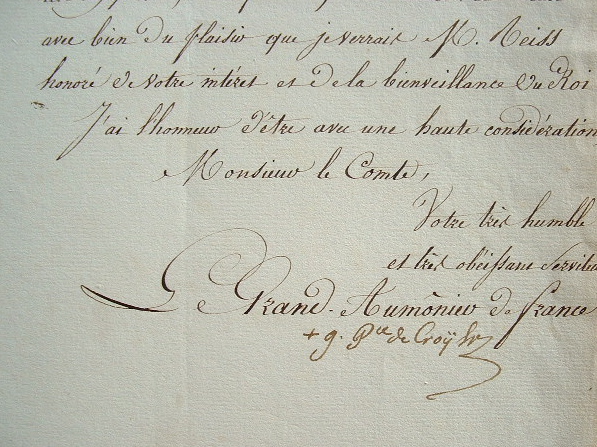 avec bien du plaisir que je verrais M. Reiss
honoré de votre intéret et de la bienveillance du Roi
J'ai l'honneur d'être avec une haute considération
Monsieur le Comte,
Votre très humble
et très obéissant Servite
Le Grand-Aumônier de france
+ g. P^ce de Croÿ